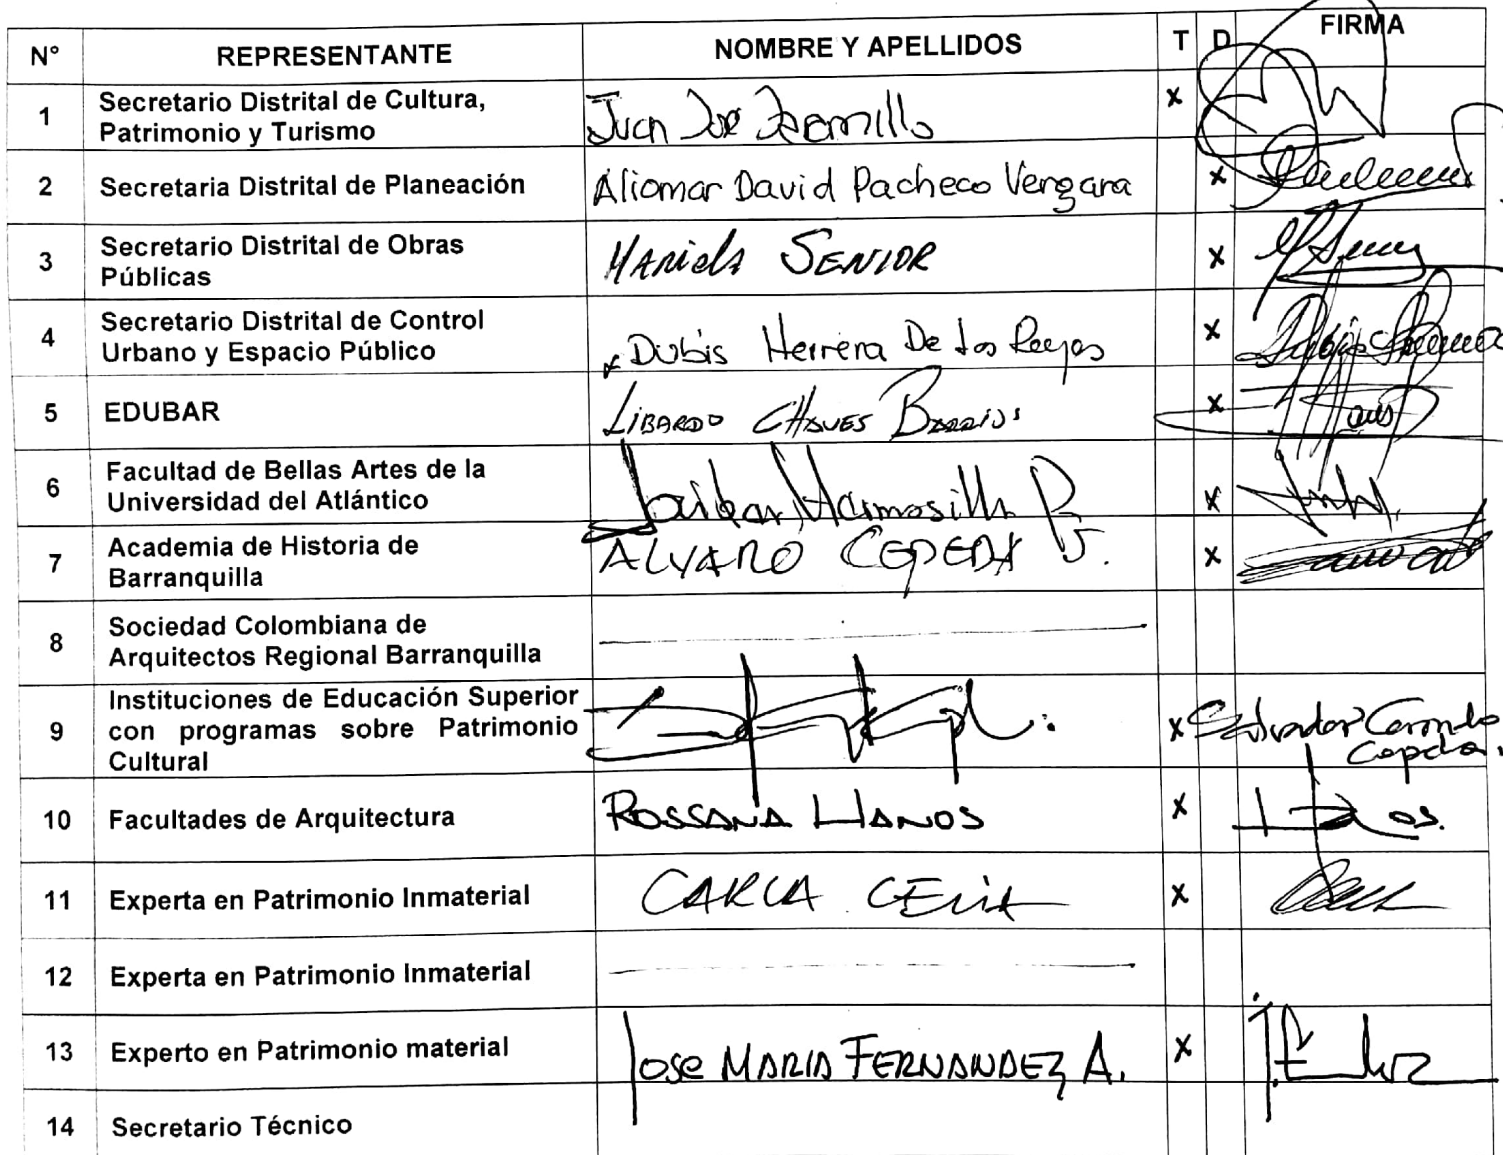 N° REPRESENTANTE NOMBRE Y APELLIDOS T D FIRMA
1 Secretario Distrital de Cultura, Patrimonio y Turismo Juan José Jaramillo x
2 Secretaria Distrital de Planeación Aliomar David Pacheco Vergara x
3 Secretario Distrital de Obras Públicas Mariela SENIOR x
4 Secretario Distrital de Control Urbano y Espacio Público x Dubis Herrera De Los Reyes x
5 EDUBAR LIBARDO CHAVES BARRIOS x
6 Facultad de Bellas Artes de la Universidad del Atlántico x
7 Academia de Historia de Barranquilla ALVARO CEPEDA J. x
8 Sociedad Colombiana de Arquitectos Regional Barranquilla
9 Instituciones de Educación Superior con programas sobre Patrimonio Cultural x Salvador Coronado Cepeda.
10 Facultades de Arquitectura ROSSANA LLANOS x
11 Experta en Patrimonio Inmaterial CARLA CELIA x
12 Experta en Patrimonio Inmaterial
13 Experto en Patrimonio material Jose MARIA FERNANDEZ A. x
14 Secretario Técnico